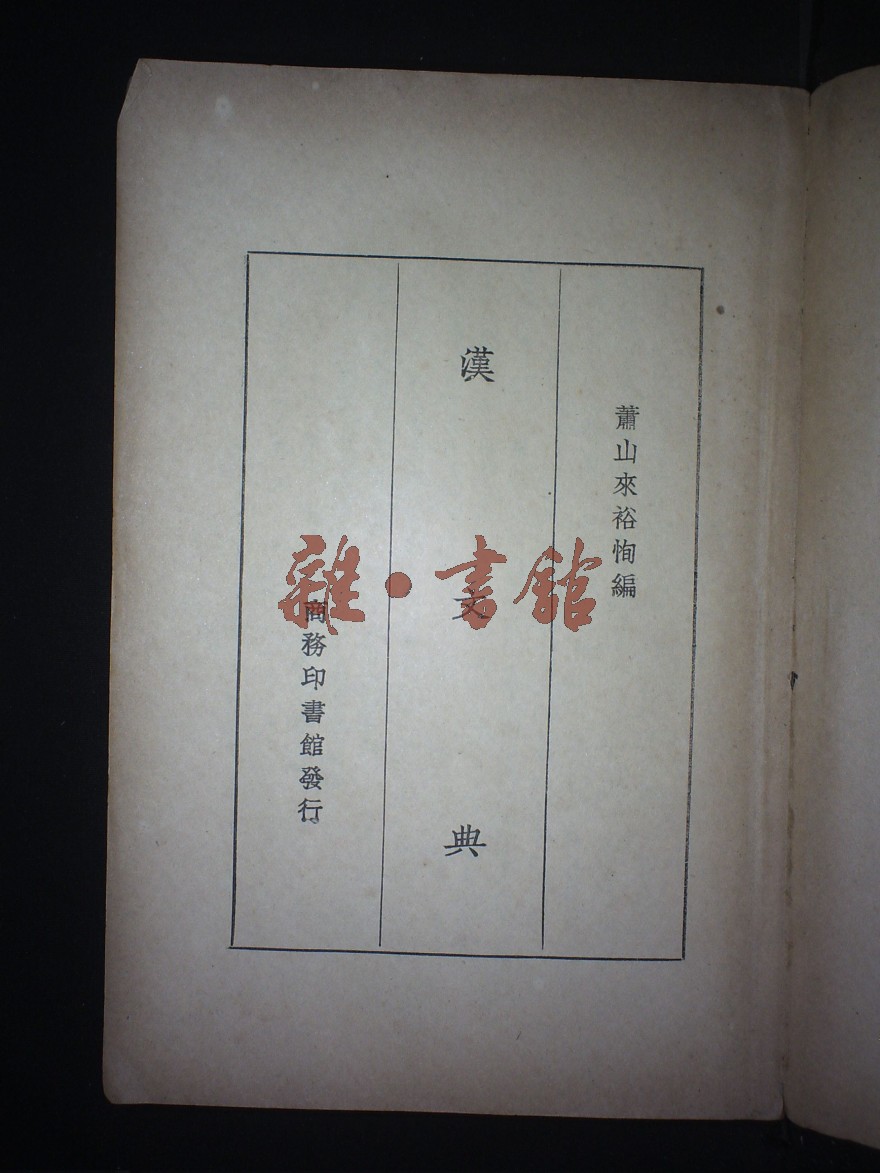 蕭山來裕恂編
漢文典
商務印書館發行
雜·書館